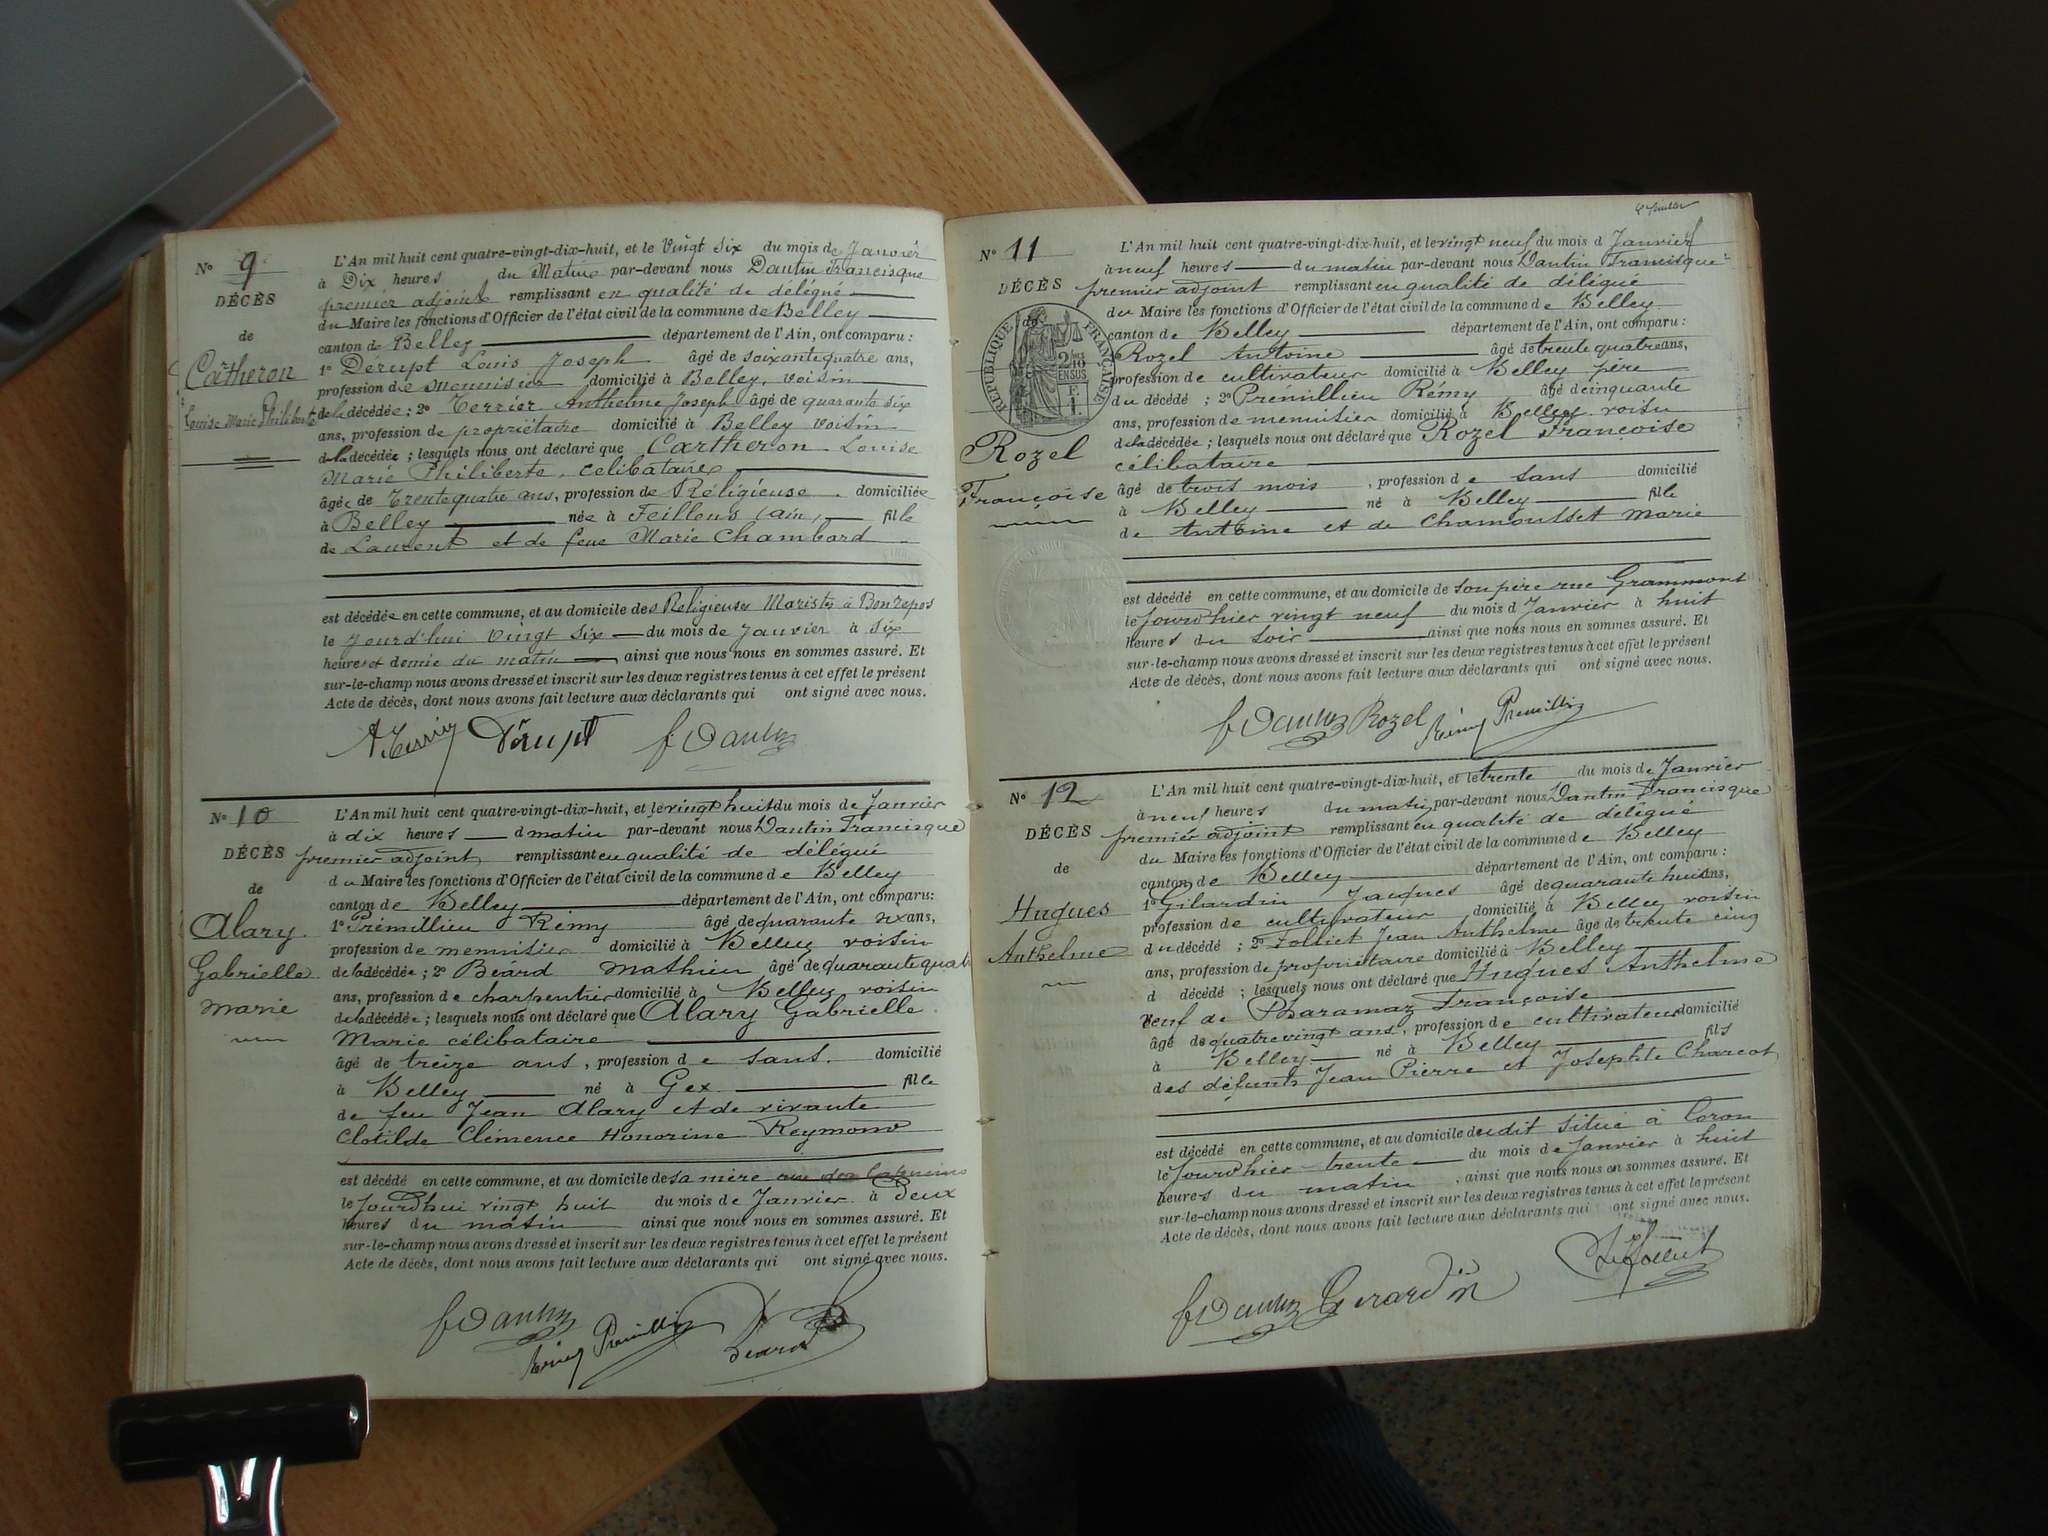 N° 9
DÉCÈS
de
Cartheron
Louise Marie Philiberte
L'An mil huit cent quatre-vingt-dix-huit, et le Vingt Six du mois de Janvier
à Dix heures du Matin par-devant nous Dantin Francisque
premier adjoint remplissant en qualité de délégué
du Maire les fonctions d'Officier de l'état civil de la commune de Belley
canton de Belley département de l'Ain, ont comparu :
1° Dérupt Louis Joseph âgé de soixante quatre ans,
profession de menuisier domicilié à Belley, voisin
de la décédée ; 2° Terrier Anthelme Joseph âgé de quarante six
ans, profession de propriétaire domicilié à Belley voisin
de la décédée ; lesquels nous ont déclaré que Cartheron Louise
Marie Philiberte, célibataire
âgée de Trente quatre ans, profession de Réligieuse domiciliée
à Belley née à Feillens (ain) fille
de Laurent et de feue Marie Chambard
est décédée en cette commune, et au domicile des Religieuses Maristes à Bonrepos
le jourd'hui Vingt Six du mois de Janvier à Six
heures et demie du matin ainsi que nous nous en sommes assuré. Et
sur-le-champ nous avons dressé et inscrit sur les deux registres tenus à cet effet le présent
Acte de décès, dont nous avons fait lecture aux déclarants qui ont signé avec nous.
A Terrier Dérupt f Dantin
N° 10
DÉCÈS
de
Alary
Gabrielle
Marie
L'An mil huit cent quatre-vingt-dix-huit, et le vingt huit du mois de Janvier
à dix heures d matin par-devant nous Dantin Francisque
premier adjoint remplissant en qualité de délégué
du Maire les fonctions d'Officier de l'état civil de la commune de Belley
canton de Belley département de l'Ain, ont comparu :
1° Prémillieu Rémy âgé de quarante ans,
profession de menuisier domicilié à Belley voisin
de la décédée ; 2° Béard Mathieu âgé de quarante quatre
ans, profession de charpentier domicilié à Belley voisin
de la décédée ; lesquels nous ont déclaré que Alary Gabrielle
Marie célibataire
âgé de treize ans, profession de sans. domicilié
à Belley né à Gex fille
de feu Jean Alary et de vivante
Clotilde Clémence Honorine Reymond
est décédé en cette commune, et au domicile de sa mère rue des Capucins
le Jourdhui vingt huit du mois de Janvier à Deux
heures du matin ainsi que nous nous en sommes assuré. Et
sur-le-champ nous avons dressé et inscrit sur les deux registres tenus à cet effet le présent
Acte de décès, dont nous avons fait lecture aux déclarants qui ont signé avec nous.
f Dantin
Rémy Premillieu Beard
N° 11
DÉCÈS
de
RÉPUBLIQUE FRANÇAISE
2/10 EN SUS
Rozel
Françoise
L'An mil huit cent quatre-vingt-dix-huit, et le vingt neuf du mois d Janvier
à neuf heures du matin par-devant nous Dantin Francisque
premier adjoint remplissant en qualité de délégué
du Maire les fonctions d'Officier de l'état civil de la commune de Belley
canton de Belley département de l'Ain, ont comparu :
Rozel Antoine âgé de trente quatre ans,
profession de cultivateur domicilié à Belley père
du décédé ; 2° Premillieu Rémy âgé de cinquante
ans, profession de menuisier domicilié à Belley voisin
de la décédée ; lesquels nous ont déclaré que Rozel Françoise
célibataire
âgé de trois mois, profession de sans domicilié
à Belley né à Belley fille
de Antoine et de Chamousset Marie
est décédé en cette commune, et au domicile de son père rue Grammont
le Jourdhier vingt neuf du mois d Janvier à huit
heures du soir ainsi que nous nous en sommes assuré. Et
sur-le-champ nous avons dressé et inscrit sur les deux registres tenus à cet effet le présent
Acte de décès, dont nous avons fait lecture aux déclarants qui ont signé avec nous.
f Dantin Rozel Rémy Premillieu
N° 12
DÉCÈS
de
Hugues
Anthelme
L'An mil huit cent quatre-vingt-dix-huit, et le trente du mois de Janvier
à neuf heures du matin par-devant nous Dantin Francisque
premier adjoint remplissant en qualité de délégué
du Maire les fonctions d'Officier de l'état civil de la commune de Belley
canton de Belley département de l'Ain, ont comparu :
1° Gilardin Jacques âgé de quarante huit ans,
profession de cultivateur domicilié à Belley voisin
du décédé ; 2° Folliet Jean Anthelme âgé de trente cinq
ans, profession de propriétaire domicilié à Belley
d décédé ; lesquels nous ont déclaré que Hugues Anthelme
veuf de Pharamaz Françoise
âgé de quatre vingt ans, profession de cultivateur domicilié
à Belley né à Belley fils
des défunts Jean Pierre et Josephte Charcot
est décédé en cette commune, et au domicile dudit situé à Coron
le Jourdhier trente du mois de Janvier à huit
heures du matin, ainsi que nous nous en sommes assuré. Et
sur-le-champ nous avons dressé et inscrit sur les deux registres tenus à cet effet le présent
Acte de décès, dont nous avons fait lecture aux déclarants qui ont signé avec nous.
f Dantin Girardin Folliet